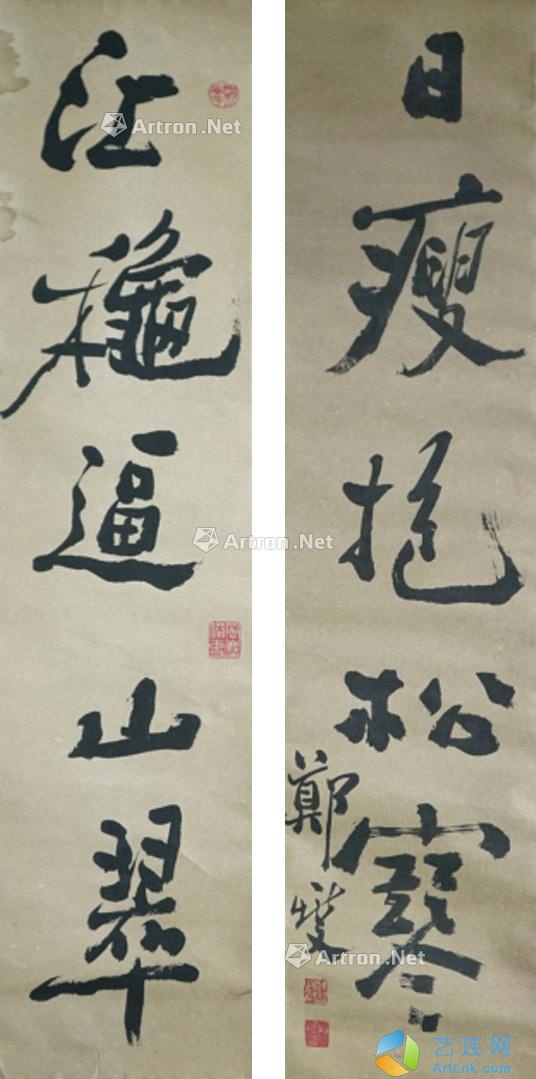 日瘦抱松寒
鄭燮
江穐逼山翠
Artron.Net
Artron.Net
Artron.Net
Artron.Net
艺连网
ArtLnk.com